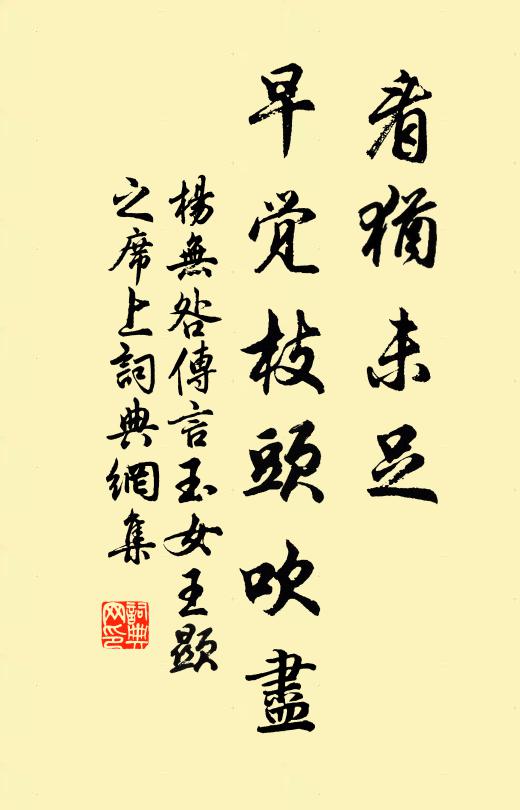 看猶未足
早覺枝頭吹盡
楊無咎傳言玉女王顯
之席上詞典網集
詞典
网印